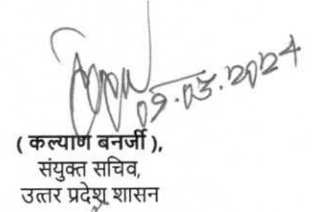 09.03.2024
( कल्याण बनर्जी ),
संयुक्त सचिव,
उत्तर प्रदेश शासन